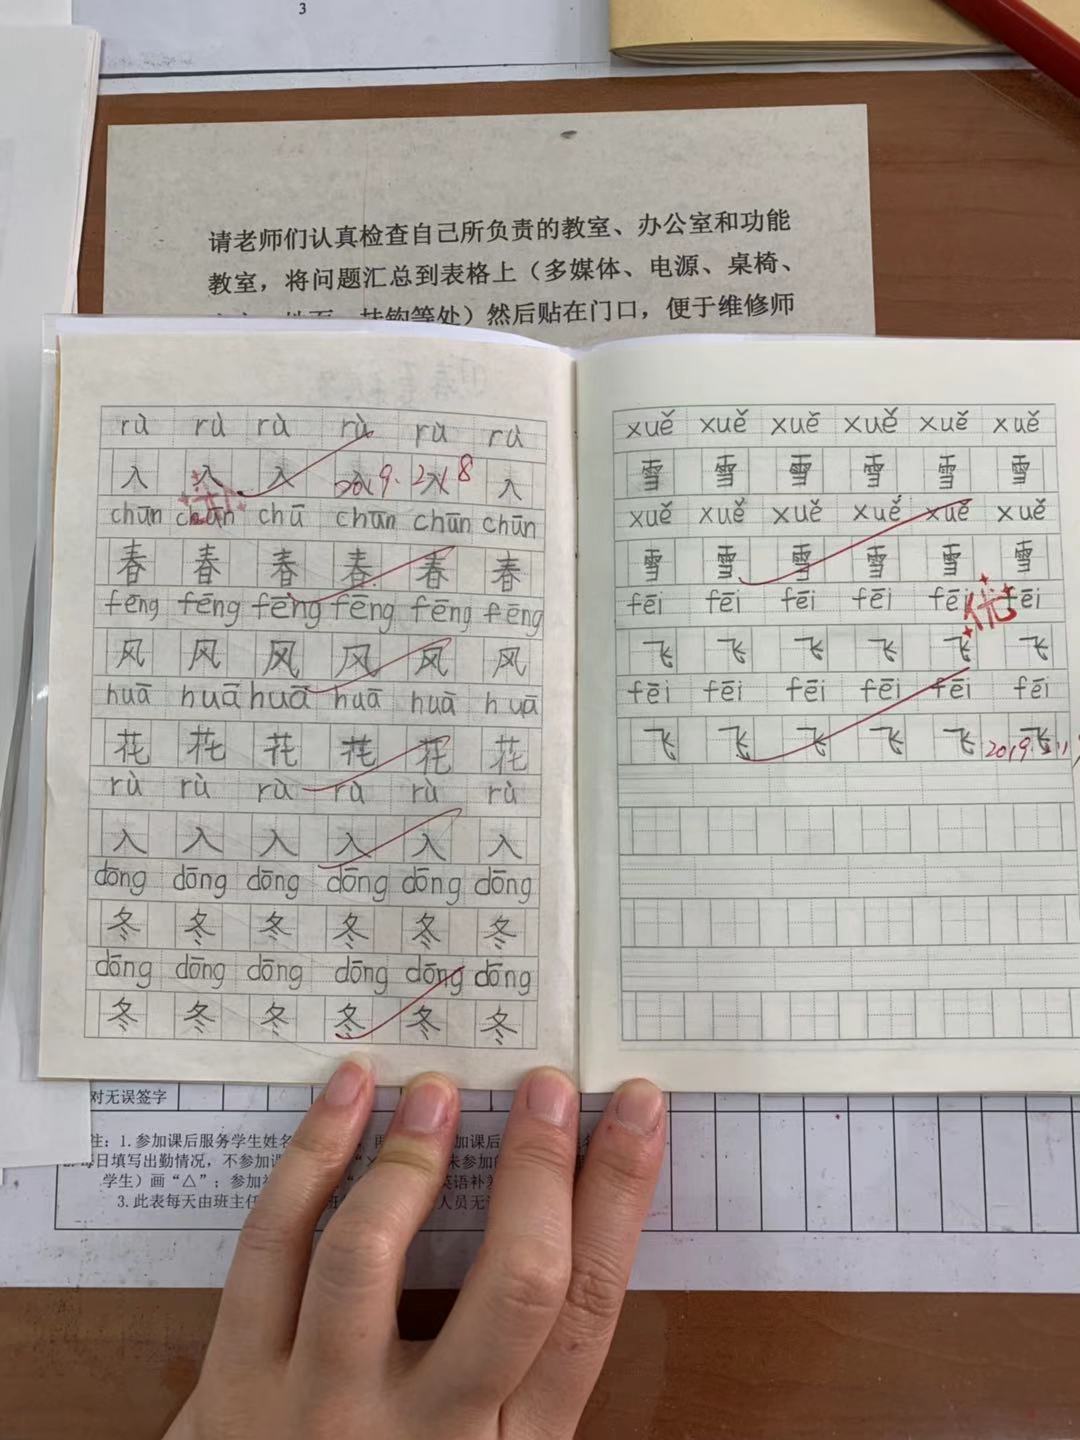 3
请老师们认真检查自己所负责的教室、办公室和功能
教室，将问题汇总到表格上（多媒体、电源、桌椅、
然后贴在门口，便于维修师
rù rù rù rù rù rù
入 入 入 入 入 入
2019. 2. 18
chūn chūn chū chūn chūn chūn
春 春 春 春 春 春
fēng fēng fēng fēng fēng fēng
风 风 风 风 风 风
huā huā huā huā huā huā
花 花 花 花 花 花
rù rù rù rù rù rù
入 入 入 入 入 入
dōng dōng dōng dōng dōng dōng
冬 冬 冬 冬 冬 冬
dōng dōng dōng dōng dōng dōng
冬 冬 冬 冬 冬 冬
xuě xuě xuě xuě xuě xuě
雪 雪 雪 雪 雪 雪
xuě xuě xuě xuě xuě xuě
雪 雪 雪 雪 雪 雪
fēi fēi fēi fēi fēi fēi
优
飞 飞 飞 飞 飞 飞
fēi fēi fēi fēi fēi fēi
飞 飞 飞 飞 飞 飞
2019
对无误签字
注：1.参加课后服务学生姓名
每日填写出勤情况，不参加课 “× 未参加的
学生）画“△”；参加 英语补差
3.此表每天由班主任 人员无